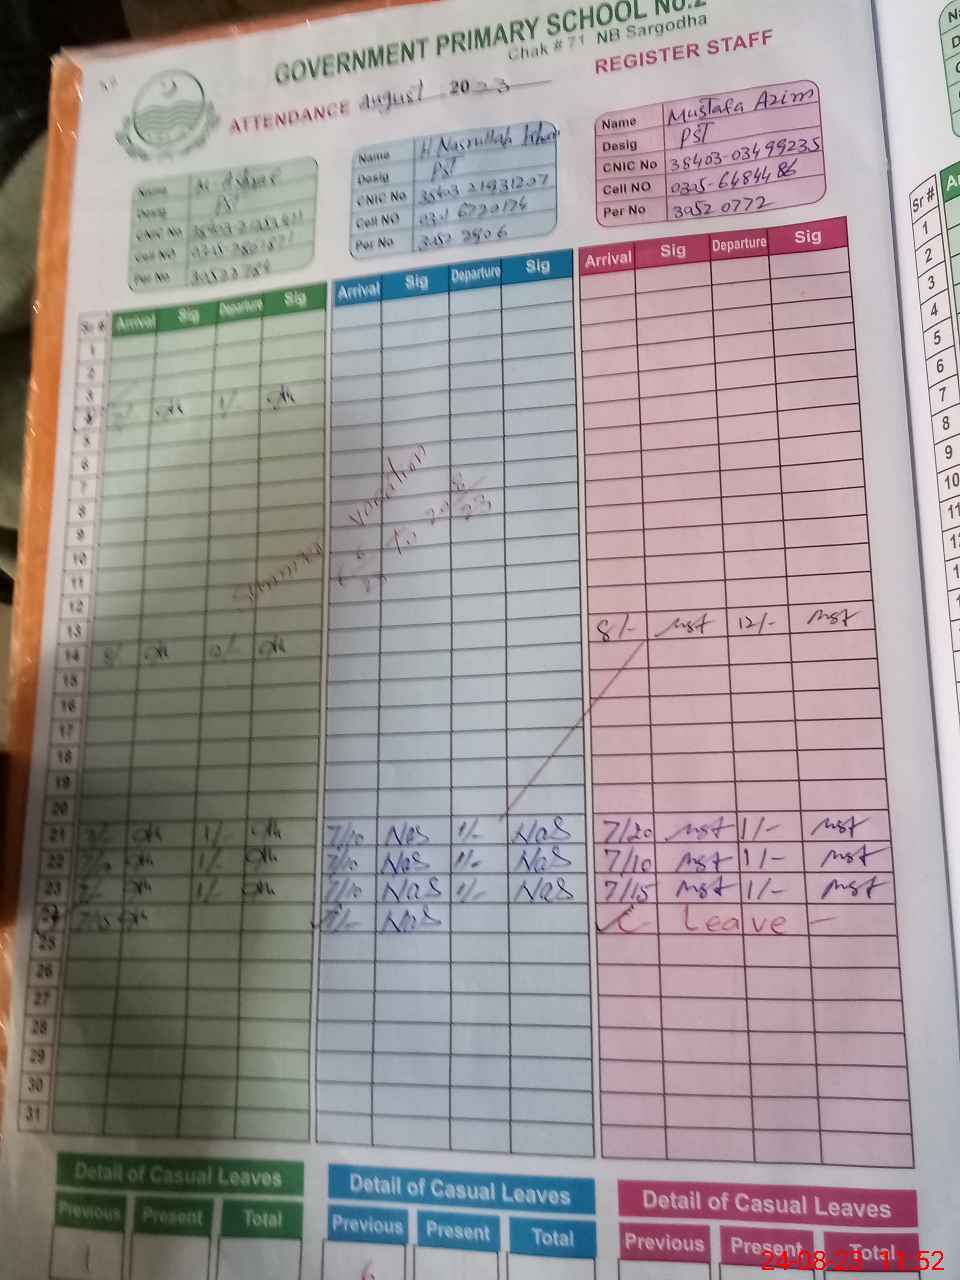 GOVERNMENT PRIMARY SCHOOL No.2
Chak # 71 NB Sargodha
ATTENDANCE August 2023 REGISTER STAFF
Name M. Ashraf
Desig PST
CNIC No
Cell NO
Per No
Name H. Nasrullah
Desig PST
CNIC No 38403 21931207
Cell NO 0301 6720124
Per No 3052 2906
Name Mustafa Azim
Desig PST
CNIC No 38403-03499235
Cell NO 0305-6484486
Per No 30520772
Sr # Arrival Sig Departure Sig Arrival Sig Departure Sig Arrival Sig Departure Sig
1
2
3
4 1/-
5
6
7
8
9
10
11
12
Summer vacation
to 20 8/23
13 8/- Mst 12/- Mst
14 8/-
15
16
17
18
19
20
21 1/- 7/10 NaS 1/- NaS 7/20 Mst 1/- Mst
22 1/- 7/10 NaS 1/- NaS 7/10 Mst 1/- Mst
23 1/- 7/10 NaS 1/- NaS 7/15 Mst 1/- Mst
24 7/15 NaS C- Leave -
25
26
27
28
29
30
31
Detail of Casual Leaves Detail of Casual Leaves Detail of Casual Leaves
Previous Present Total Previous Present Total Previous Present Total
1 6
Sr #
1
2
3
4
5
6
7
8
9
10
11
24-08-23 11:52